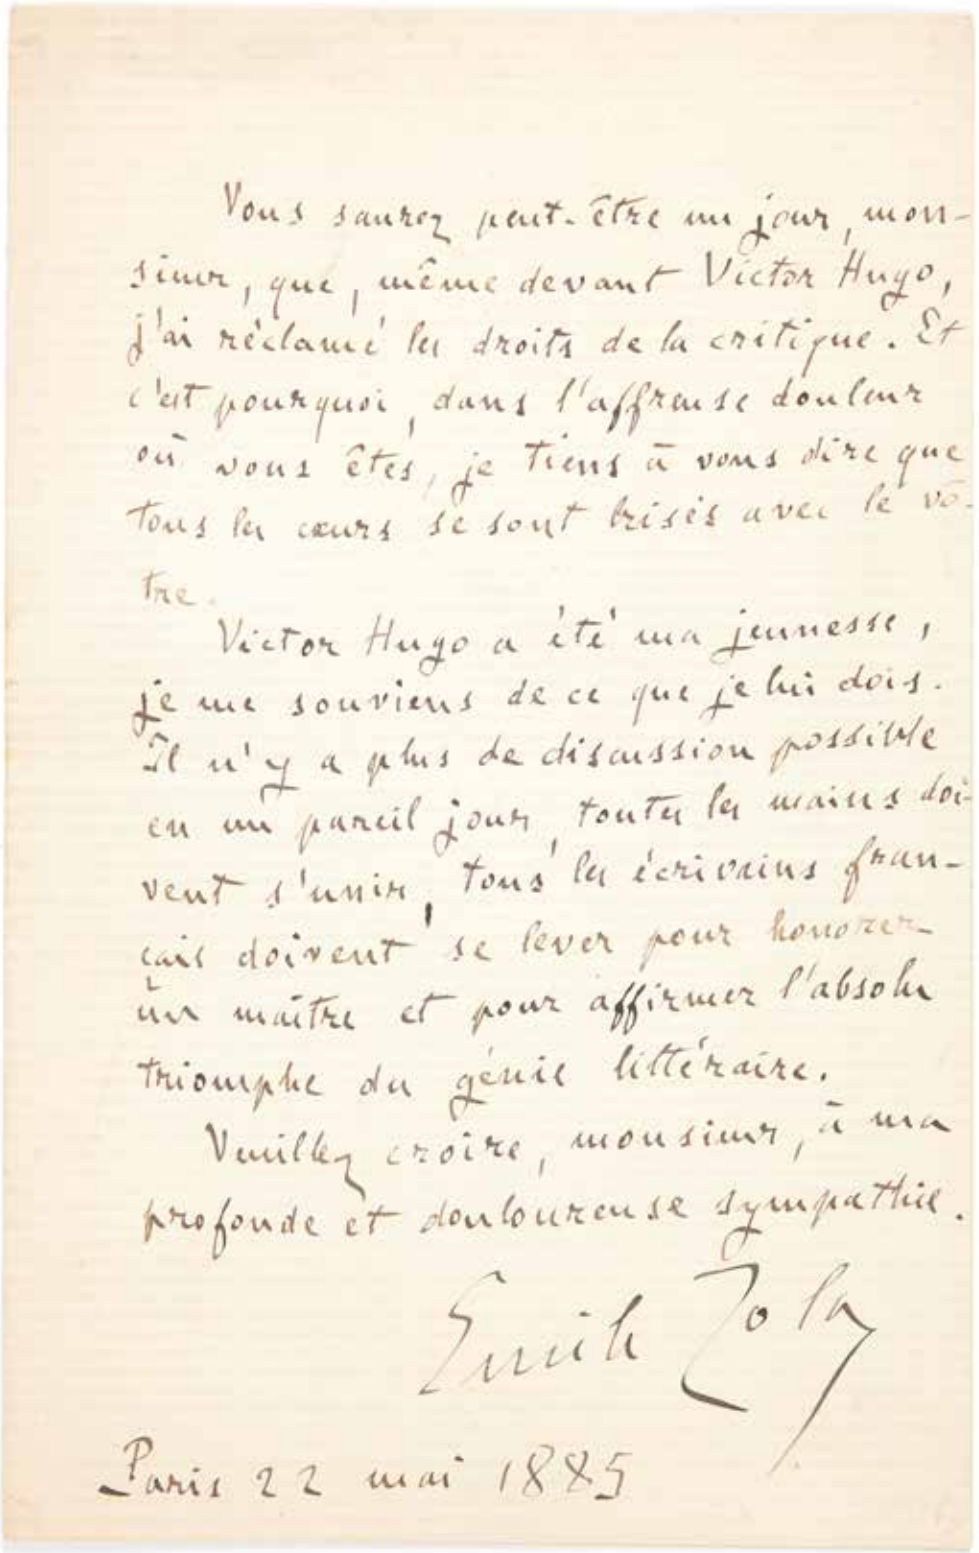 Vous saurez peut-être un jour, mon-
sieur, que, même devant Victor Hugo,
j'ai réclamé les droits de la critique. Et
c'est pourquoi, dans l'affreuse douleur
où vous êtes, je tiens à vous dire que
tous les cœurs se sont brisés avec le vô-
tre.
Victor Hugo a été ma jeunesse,
je me souviens de ce que je lui dois.
Il n'y a plus de discussion possible
en un pareil jour, toutes les mains doi-
vent s'unir, tous les écrivains fran-
çais doivent se lever pour honorer
un maître et pour affirmer l'absolu
triomphe du génie littéraire.
Veuillez croire, monsieur, à ma
profonde et douloureuse sympathie.
Emile Zola
Paris 22 mai 1885